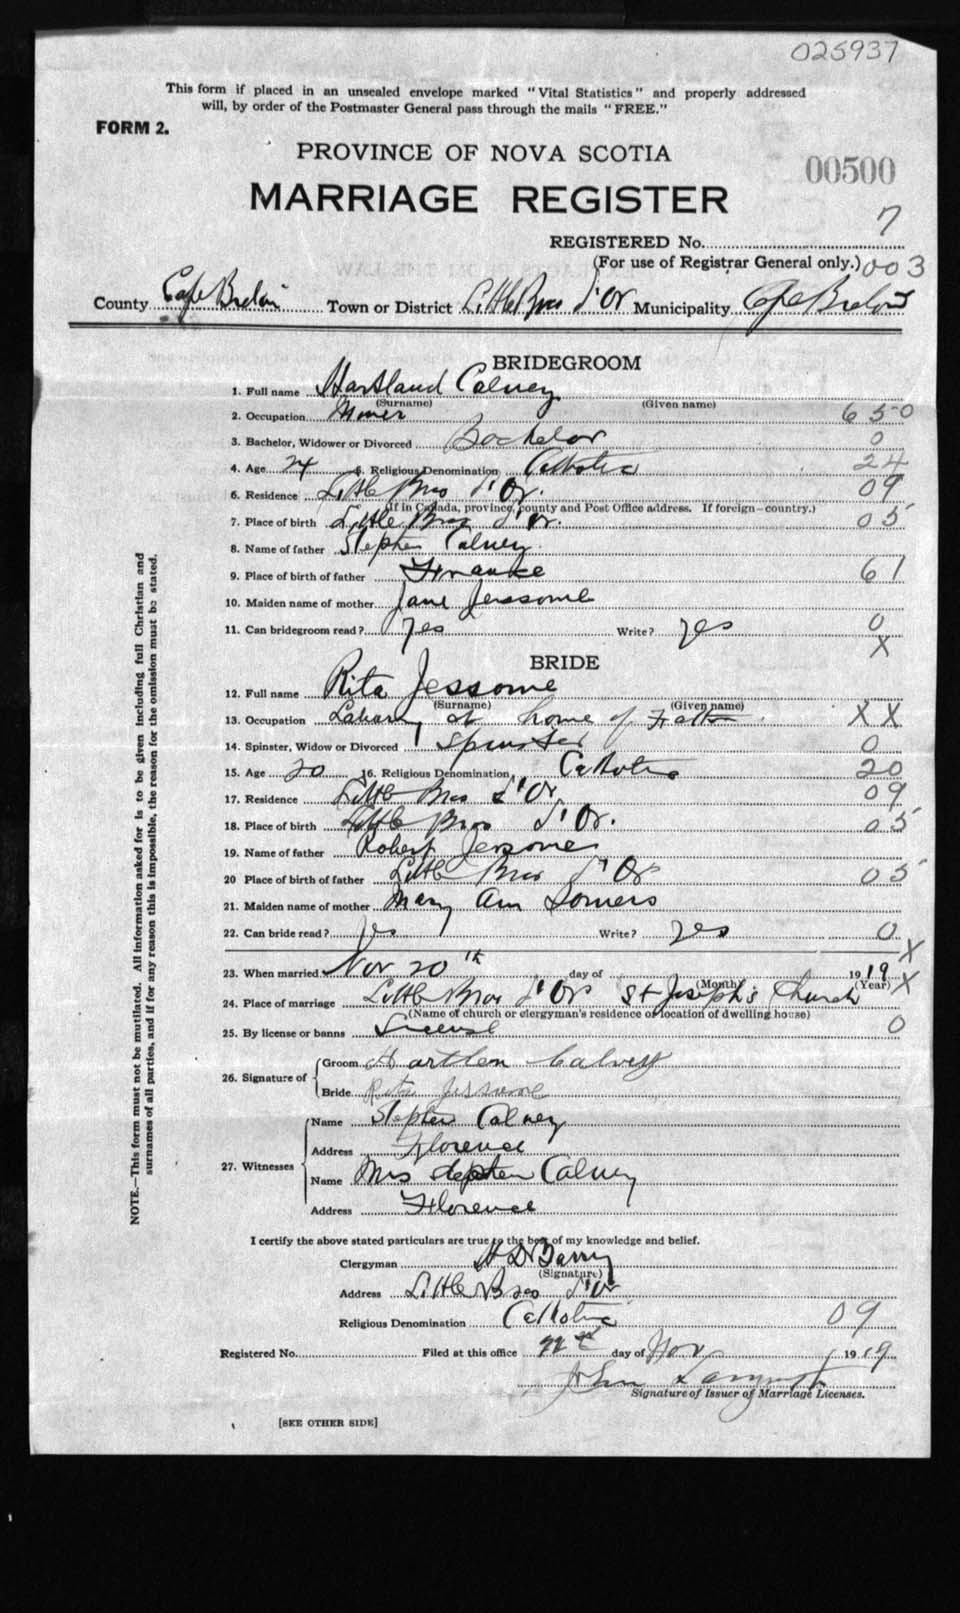 025937
This form if placed in an unsealed envelope marked "Vital Statistics" and properly addressed
will, by order of the Postmaster General pass through the mails "FREE."
FORM 2.
PROVINCE OF NOVA SCOTIA
00500
MARRIAGE REGISTER
7
REGISTERED No.
(For use of Registrar General only.) 003
County Cape Breton Town or District Little Bras d'Or Municipality Cape Breton
BRIDEGROOM
1. Full name Hartland Calvey
(Surname) (Given name)
2. Occupation Miner 650
3. Bachelor, Widower or Divorced Bachelor 0
4. Age 24 5. Religious Denomination Catholic 24
6. Residence Little Bras d'Or. 09
(If in Canada, province, county and Post Office address. If foreign—country.)
7. Place of birth Little Bras d'Or. 05
8. Name of father Stephen Calvey.
9. Place of birth of father France 61
10. Maiden name of mother Jane Jessome
11. Can bridegroom read? Yes Write? Yes 0
X
BRIDE
12. Full name Rita Jessome
(Surname) (Given name)
13. Occupation at home of XX
14. Spinster, Widow or Divorced Spinster 0
15. Age 20 16. Religious Denomination Catholic 20
17. Residence Little Bras d'Or 09
18. Place of birth Little Bras d'Or. 05
19. Name of father Robert Jessome
20 Place of birth of father Little Bras d'Or 05
21. Maiden name of mother Mary Ann Somers
22. Can bride read? Yes Write? Yes 0
X
23. When married Nov 20th day of 1919 X
(Month) (Year)
24. Place of marriage Little Bras d'Or St Joseph's Church
(Name of church or clergyman's residence or location of dwelling house)
25. By license or banns License 0
26. Signature of Groom Hartlen Calvey
Bride Rita Jessome
27. Witnesses Name Stephen Calvey
Address Florence
Name Mrs Stephen Calvey
Address Florence
I certify the above stated particulars are true to the best of my knowledge and belief.
Clergyman
(Signature)
Address Little Bras d'Or
Religious Denomination Catholic 09
Registered No. Filed at this office 22nd day of Nov 1919
John
Signature of Issuer of Marriage Licenses.
[SEE OTHER SIDE]
NOTE.—This form must not be mutilated. All information asked for is to be given including full Christian and
surnames of all parties, and if for any reason this is impossible, the reason for the omission must be stated.